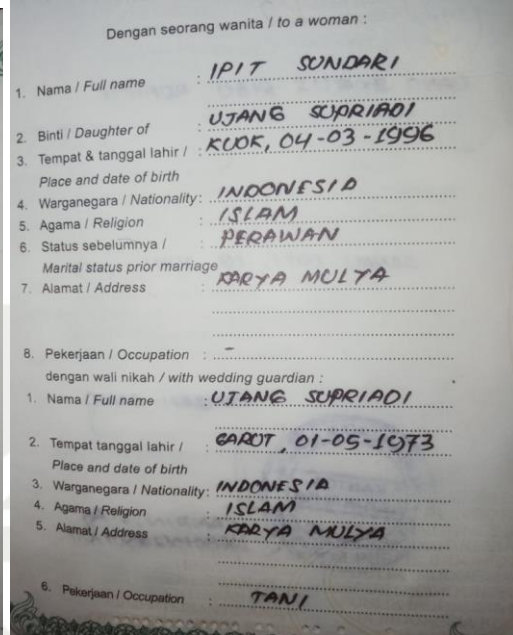 Dengan seorang wanita / to a woman :
1. Nama / Full name : IPIT SUNDARI
2. Binti / Daughter of UJANG SUPRIADI
3. Tempat & tanggal lahir / : KUOK, 04-03-1996
Place and date of birth
4. Warganegara / Nationality : INDONESIA
5. Agama / Religion : ISLAM
6. Status sebelumnya / : PERAWAN
Marital status prior marriage
7. Alamat / Address : KARYA MULYA
8. Pekerjaan / Occupation : -
dengan wali nikah / with wedding guardian :
1. Nama / Full name : UJANG SUPRIADI
2. Tempat tanggal lahir / : GAROT, 01-05-1973
Place and date of birth
3. Warganegara / Nationality : INDONESIA
4. Agama / Religion : ISLAM
5. Alamat / Address : KARYA MULYA
6. Pekerjaan / Occupation : TANI